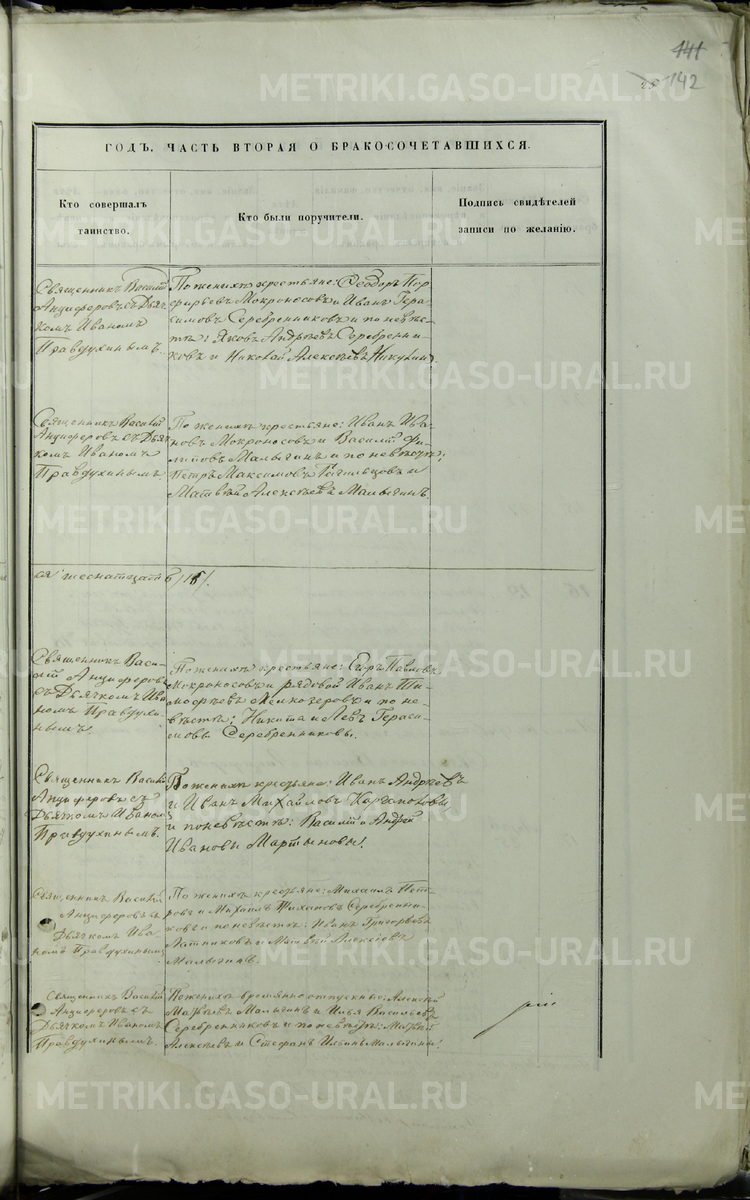 141
142
ГОДЪ, ЧАСТЬ ВТОРАЯ О БРАКОСОЧЕТАВШИХСЯ.
Кто совершалъ
таинство.
Кто были поручители.
Подпись свидѣтелей
записи по желанію.
Священникъ Василій
Анциферовъ съ Дьяч-
комъ Иваномъ
Правдухинымъ.
По женихѣ крестьяне: Ѳеодоръ Пор-
фирьевъ Мокроносовъ и Иванъ Гера-
симовъ Серебренниковъ и по невѣс-
тѣ: Яковъ Андреевъ Серебренни-
ковъ и Николай Алексѣевъ Никулинъ
Священникъ Василій
Анциферовъ съ Дьяч-
комъ Иваномъ
Правдухинымъ
По женихѣ крестьяне: Иванъ Ива-
новъ Мокроносовъ и Василій Фи-
липовъ Малыгинъ и по невѣстѣ:
Петръ Максимовъ и
Матвѣй Алексѣевъ Малыгинъ.
Священникъ Васи-
лій Анциферовъ
съ Дьячкомъ Ива
номъ Правдухи-
нымъ.
По женихѣ крестьяне: Егоръ Павловъ
Мокроносовъ и рядовой Иванъ Ти-
мофѣевъ Мелкозеровъ и по не-
вѣстѣ: Никита и Левъ Гераси-
мовы Серебренниковы.
Священникъ Василій
Анциферовъ съ
Дьячкомъ Иваномъ
Правдухинымъ.
По женихѣ крестьяне: Иванъ Андреевъ
и Иванъ Михайловъ Каргаполовы
и по невѣстѣ: Василій и Андрей
Ивановы Мартыновы.
Священникъ Василій
Анциферовъ съ
Дьячкомъ Ива
номъ Правдухинымъ
По женихѣ крестьяне: Михаилъ Пет-
ровъ и Михаилъ Тихановъ Серебренни-
ковы и по невѣстѣ: Иванъ Григорьевъ
Латниковъ и Матвей Алексѣевъ
Малыгинъ.
Священникъ Василій
Анциферовъ съ
Дьячкомъ Иваномъ
Правдухинымъ.
По женихѣ временно отпускные: Алексѣй
Матвѣевъ Малыгинъ и Илья Васильевъ
Серебренниковъ и по невѣстѣ: Матвей
Алексѣевъ и Стефанъ Ильинъ Малыгины.
METRIKI.GASO-URAL.RU